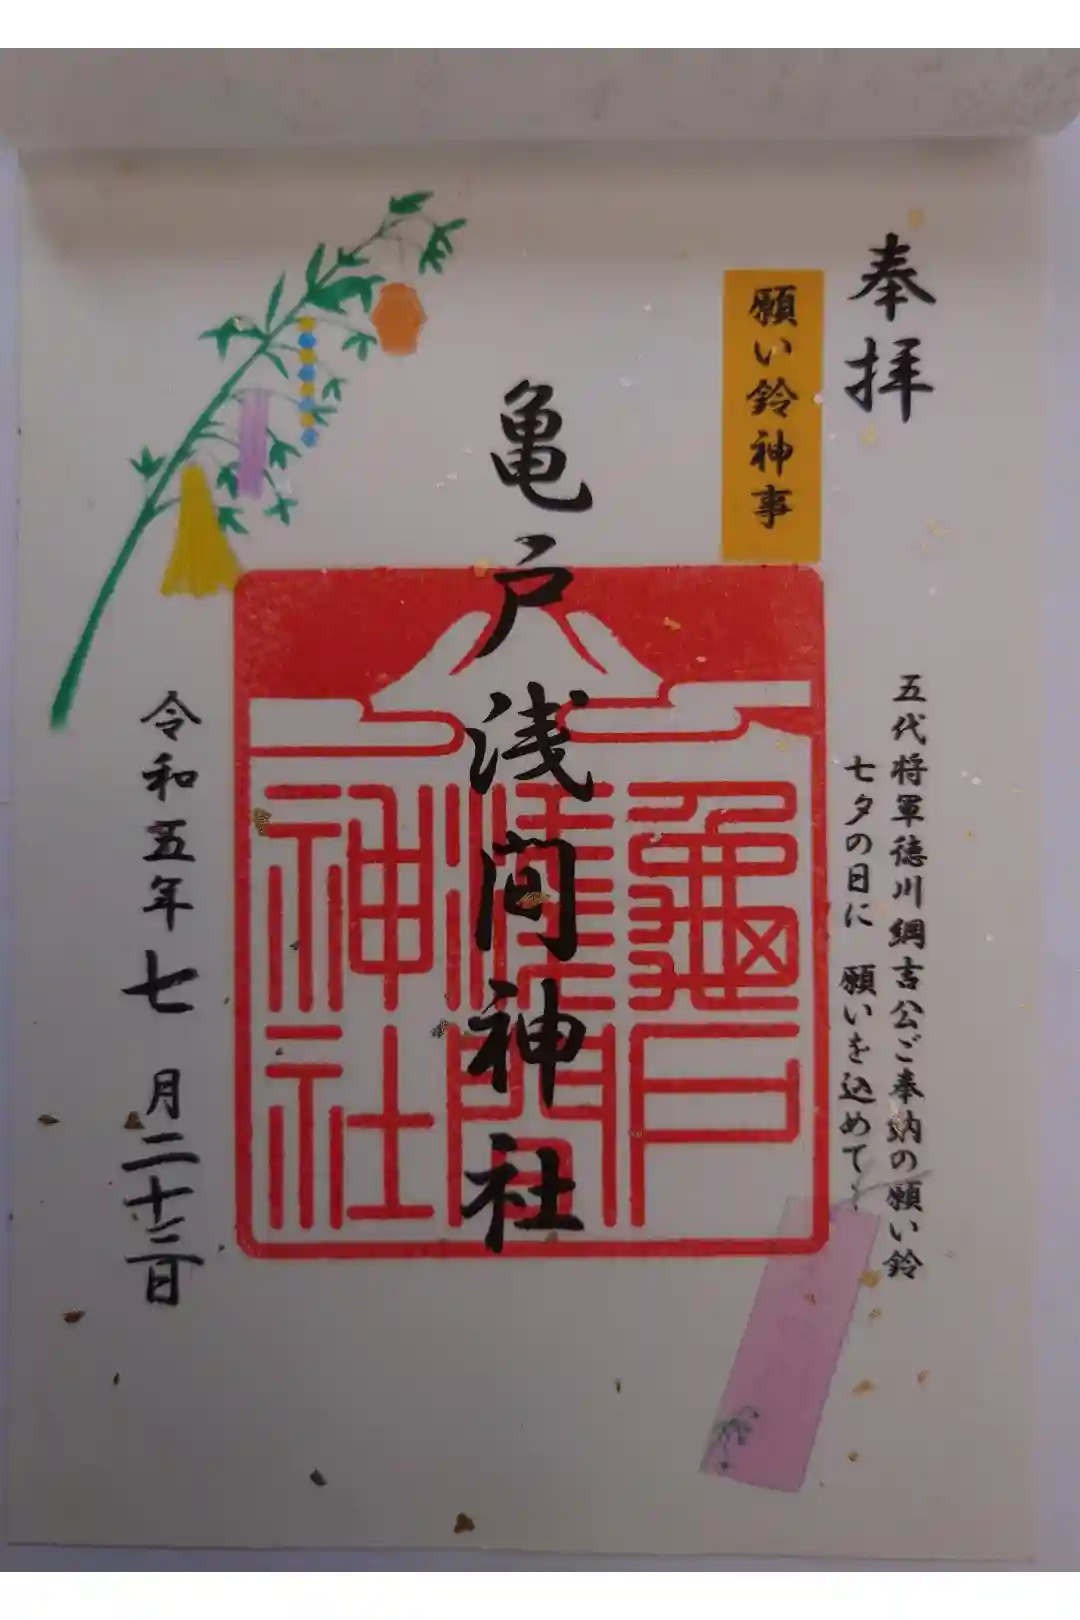 奉拝
願い鈴神事
五代将軍徳川綱吉公ご奉納の願い鈴
七夕の日に 願いを込めて
亀戸浅間神社
龜戸
淺間
神社
令和五年七月二十三日